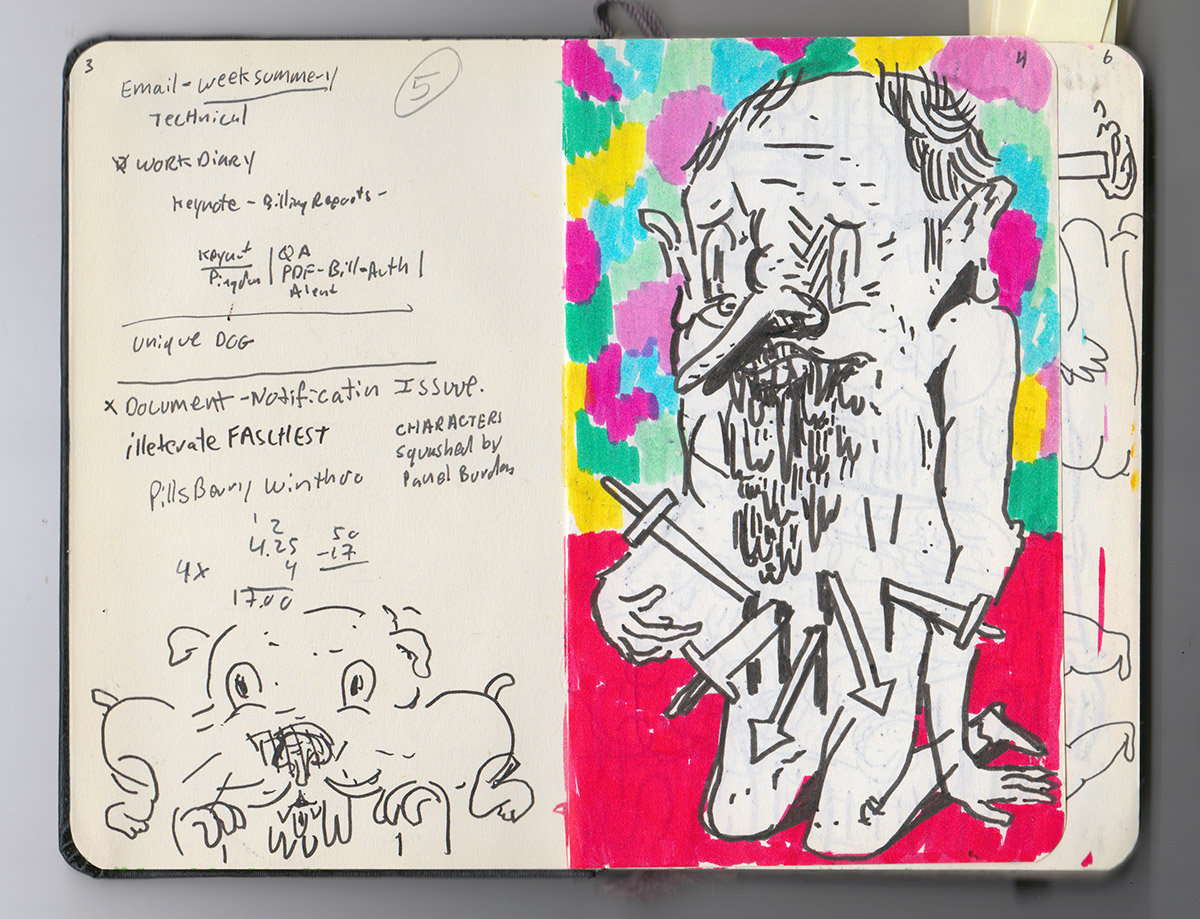 3
5
Email - week summery
Technical
WORK DIARY
Keynote - Billing Reports -
Keynot | QA
Pingdm | PDF - Bill - Auth |
Alent
Unique DOG
x Document - Notificatin Issue.
illeterate FASCHEST
CHARACTERS
squashed by
Panel Borders
PillsBarry Winthro
1 2
4.25
4x 4
17.00
50
-17
4
6